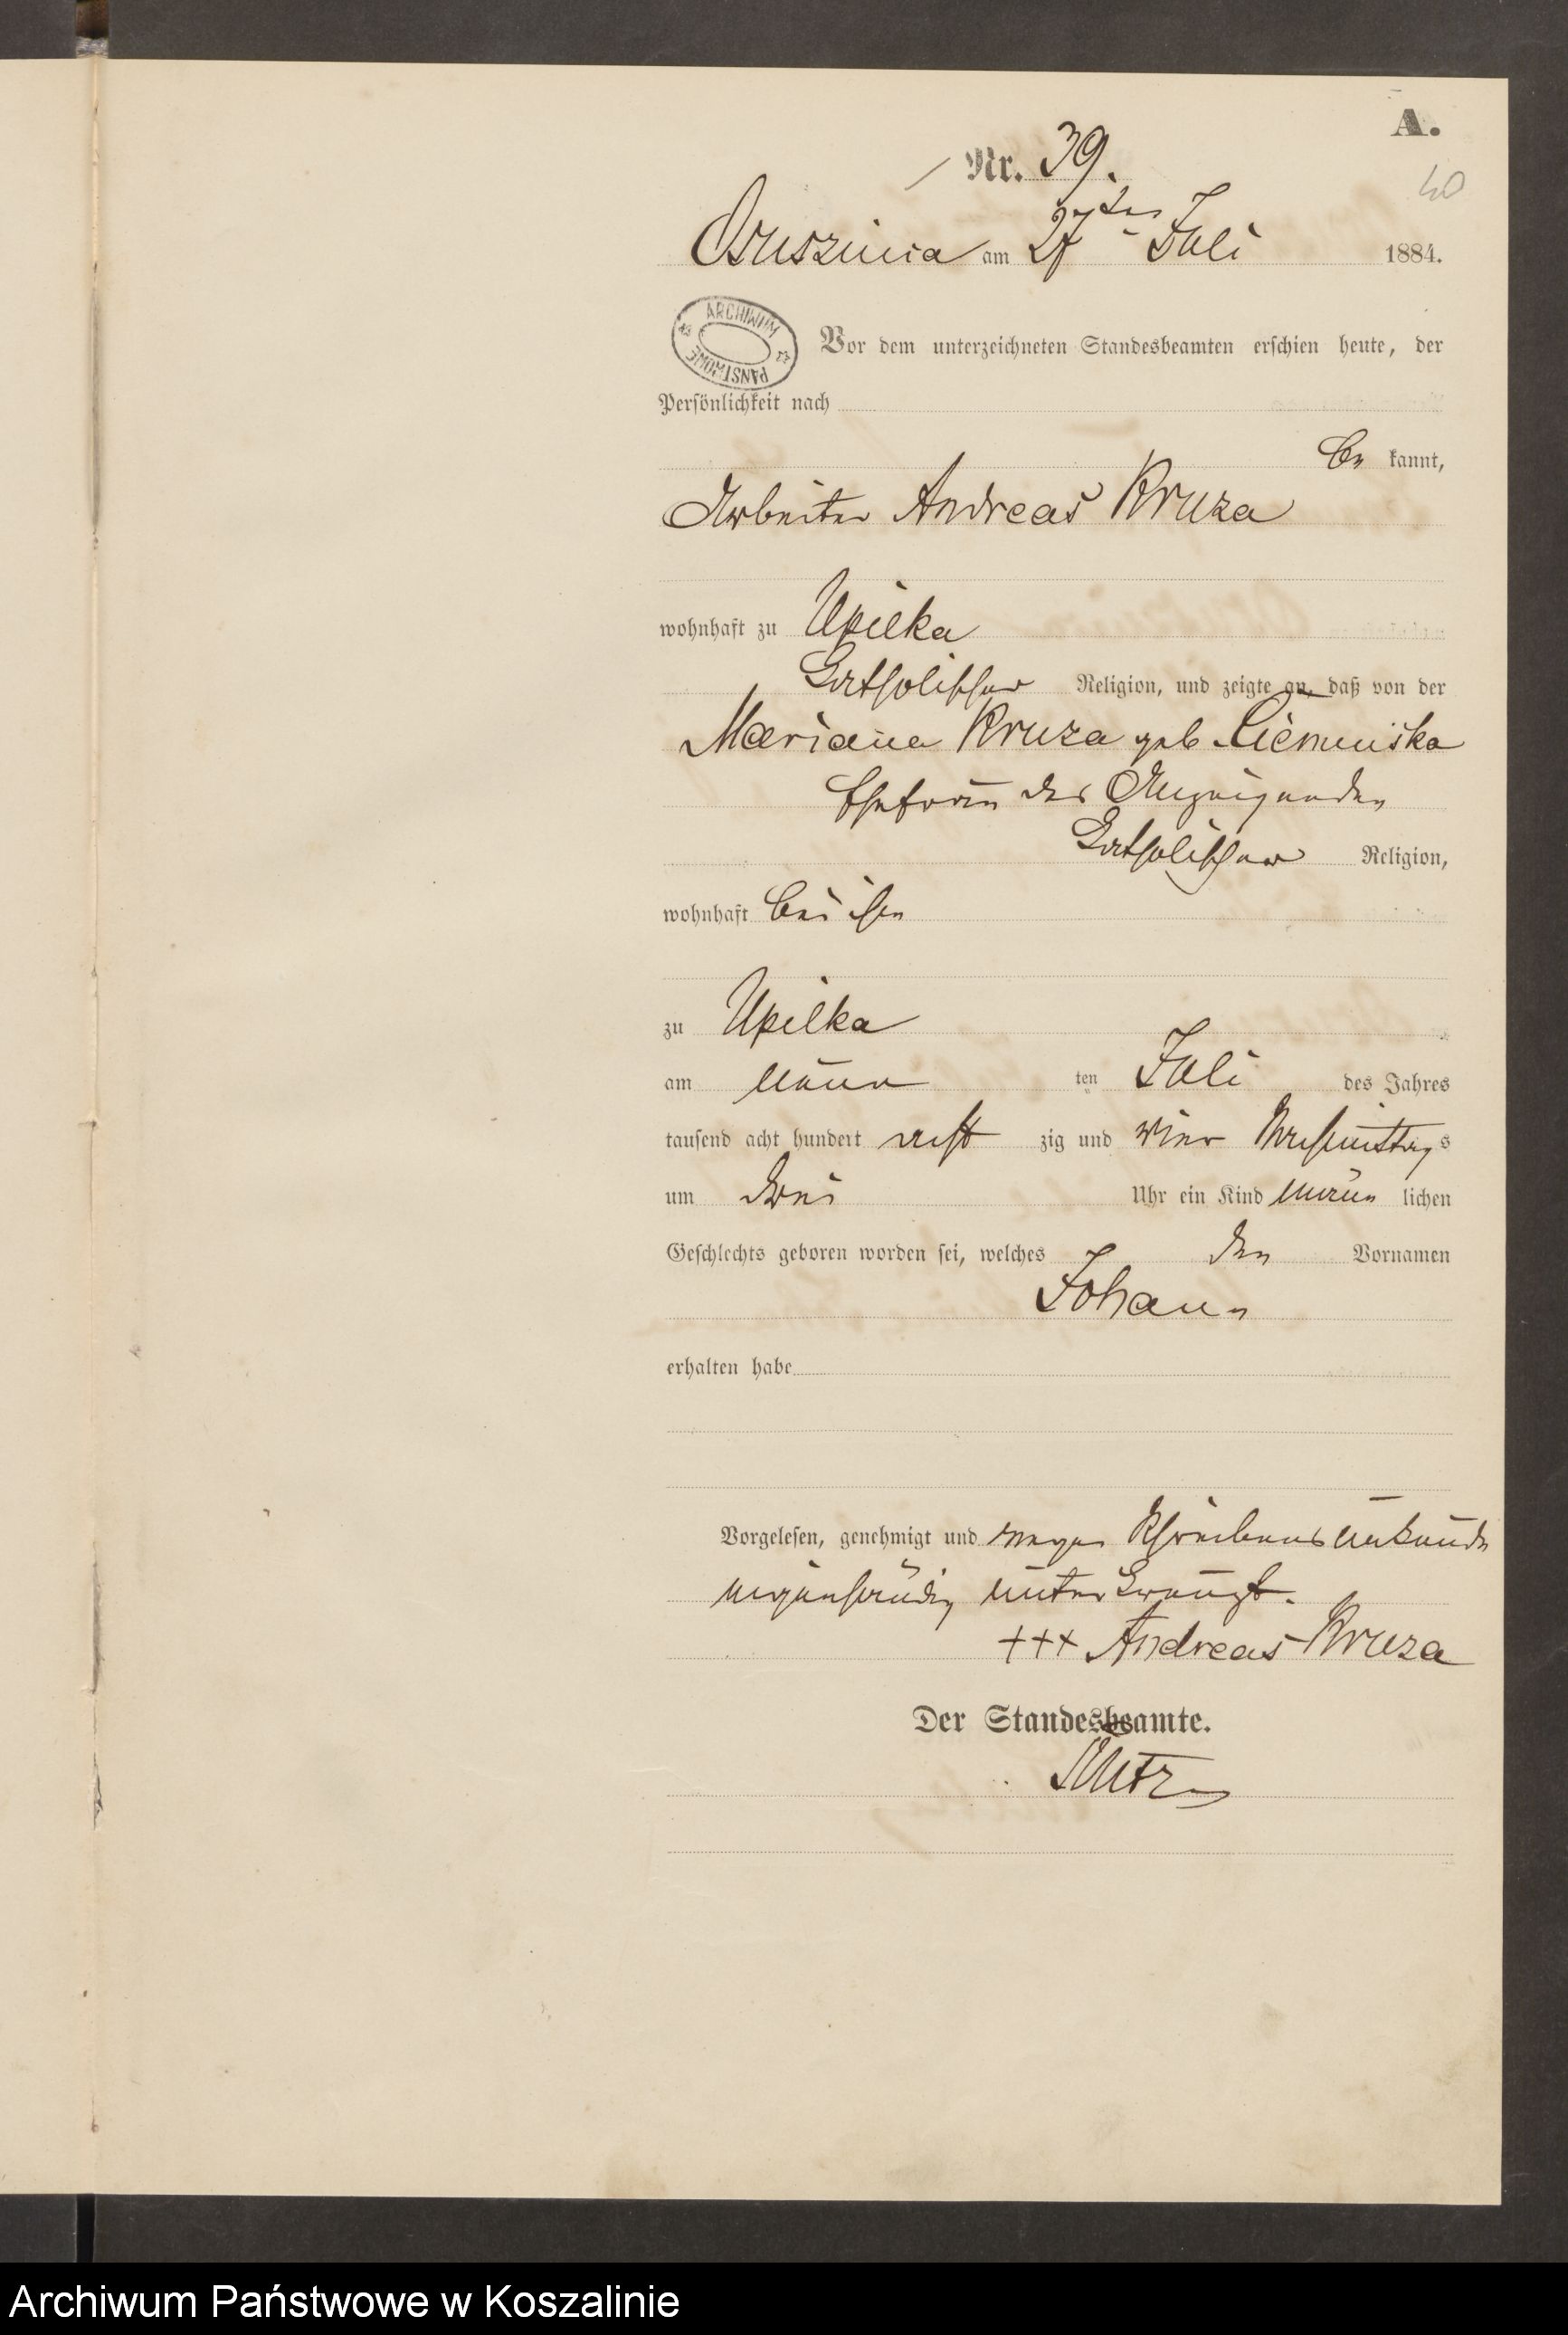 A.
Nr. 39.
40
Osusznica am 27ten Juli 1884.
ARCHIWUM PAŃSTWOWE
Vor dem unterzeichneten Standesbeamten erschien heute, der
Persönlichkeit nach
be kannt,
Arbeiter Andreas Kruza
wohnhaft zu Upilka
katholischer Religion, und zeigte an, daß von der
Mariana Kruza geb.
Ehefrau des Anzeigenden
katholischer Religion,
wohnhaft bei ihm
zu Upilka
am neun ten Juli des Jahres
tausend acht hundert acht zig und vier Nachmittags
um drei Uhr ein Kind männ lichen
Geschlechts geboren worden sei, welches den Vornamen
Johann
erhalten habe
Vorgelesen, genehmigt und wegen Schreibensunkunde
eigenhändig unterkreuzt.
+++ Andreas Kruza
Der Standesbeamte.
Archiwum Państwowe w Koszalinie